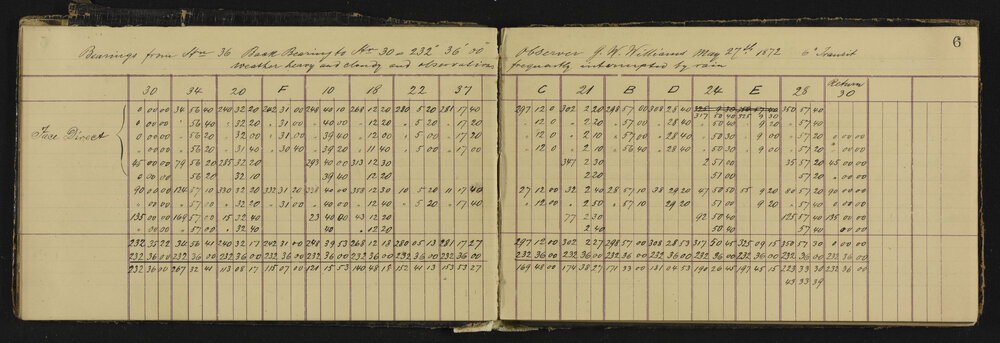 6
Bearings from Stn 36 Back Bearing to Stn 30 = 232° 36' 00"
weather heavy and cloudy and observations
Observer J. W. Williams May 27th 1872 6" Transit
frequently interrupted by rain
30 34 20 F 10 18 22 37
C 21 B D 24 E 28 Return 30
Face Direct
0 00 00 34 56 40 240 32 20 242 31 00 248 40 10 268 12 20 280 5 20 281 17 40
297 12 0 302 2 20 298 57 00 308 28 40 325 9 30 350 57 40
317 50 40 325 9 30
0 00 00 " 56 40 " 32 20 " 31 00 " 40 00 " 12 20 " 5 20 " 17 20
" 12 0 " 2 20 " 57 00 " 28 40 " 50 40 9 20 " 57 40
0 00 00 " 56 20 " 32 00 " 31 00 " 39 40 " 12 00 " 5 00 " 17 20
" 12 0 " 2 10 " 57 00 " 28 40 " 50 30 " 9 00 " 57 20 0 00 00
0 00 00 " 56 20 " 31 40 " 30 40 " 39 20 " 11 40 " 5 00 " 17 00
" 12 0 " 2 10 " 56 40 " 28 40 " 50 30 " 9 00 " 57 20 0 00 00
45 00 00 79 56 20 285 32 20 293 40 00 313 12 30
347 2 30 2 51 00 35 57 20 45 00 00
0 00 00 " 56 20 32 10 39 40 12 20
2 20 51 00 57 20 0 00 00
90 00 00 124 57 10 330 32 20 332 31 20 338 40 00 358 12 30 10 5 20 11 17 40
27 12 00 32 2 40 28 57 10 38 29 20 47 50 50 55 9 20 80 57 20 90 00 00
0 00 00 " 57 00 " 32 20 " 31 00 " 40 00 " 12 20 " 5 20 " 17 20
" 12 00 " 2 50 " 57 10 29 20 57 00 " 9 20 " 57 20 0 00 00
135 00 00 169 57 00 15 32 40 23 40 00 43 12 20
77 2 30 92 50 40 125 57 40 135 00 00
0 00 00 " 57 00 " 32 40 40 " 12 20
2 40 50 40 57 40 0 00 00
232 35 22 34 56 41 240 32 17 242 31 00 248 39 53 268 12 13 280 05 13 281 17 27
297 12 00 302 2 27 298 57 00 308 28 53 317 50 45 325 09 15 350 57 30 0 00 00
232 36 00 232 36 00 232 36 00 232 36 00 232 36 00 232 36 00 232 36 00 232 36 00
232 36 00 232 36 00 232 36 00 232 36 00 232 36 00 232 36 00 232 36 00 232 36 00
232 36 00 267 32 41 113 08 17 115 07 00 121 15 53 140 48 13 152 41 13 153 53 27
169 48 00 174 38 27 171 33 00 181 04 53 190 26 45 197 45 15 223 33 30 232 36 00
43 33 39